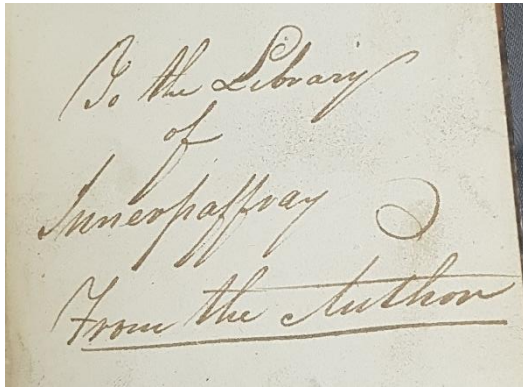 To the Library
of
Innerpaffray
From the Author